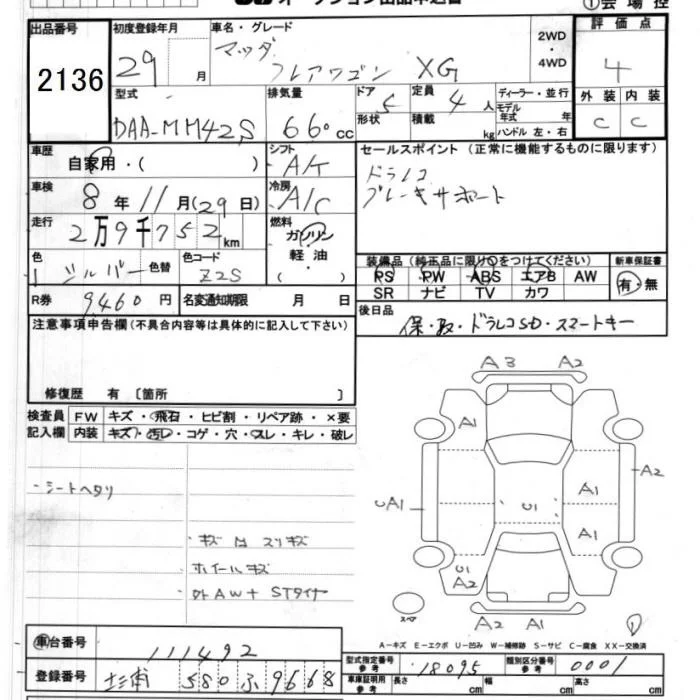 ①会場控
出品番号
2136
初度登録年月
29 月
車名・グレード
マツダ
フレアワゴン XG
2WD
・
4WD
評価点
4
外装 内装
C C
型式
DAA-MM42S
排気量
660cc
ドア
5
形状
定員
4人
積載
kg
ディーラー・並行
モデル
年式 年
ハンドル 左・右
車歴
自家用・( )
シフト
A/t
セールスポイント(正常に機能するものに限ります)
ドラレコ
ブレーキサポート
車検
8年11月(29日)
冷房
A/C
走行
2万9千752km
燃料
ガソリン
・
軽油
( )
色
シルバー 色替
色コード
Z2S
装備品(純正品に限り○をつけてください)
PS PW ABS エアB AW
SR ナビ TV カワ
新車保証書
有・無
R券
9460円
名変通知期限 月 日
後日品
保・取・ドラレコSD・スマートキー
注意事項申告欄(不具合内容等は具体的に記入して下さい)
修復歴 有〔箇所 〕
検査員
記入欄
FW キズ・飛石・ヒビ割・リペア跡・×要
内装 キズ・汚レ・コゲ・穴・スレ・キレ・破レ
・シートヘタリ
・キズ凹スリキズ
・ホイールキズ
・外AW+STタイヤ
A3 A2
A1
A2
UA1
A1
U1
A1
U1
A2
スペア
A2 A1
①
A-キズ E-エクボ U-凹み W-補修跡 S-サビ C-腐食 XX-交換済
車台番号
111492
登録番号
580 ふ 9668
型式指定番号
参考
18095
類別区分番号
参考
0001
車庫証明用
参考
長さ cm
幅 cm
高さ cm